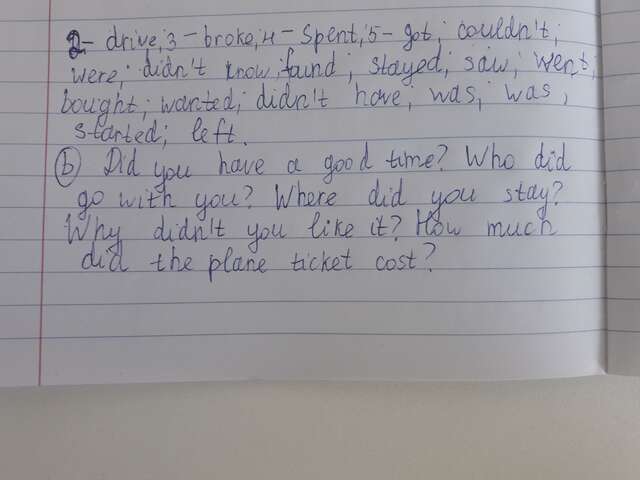 2- drive, 3- broke, 4- Spent, 5- got, couldn't,
were, didn't know, found, stayed, saw, went,
bought; wanted; didn't have, was, was,
started, left.
b Did you have a good time? Who did
go with you? Where did you stay?
Why didn't you like it? How much
did the plane ticket cost?